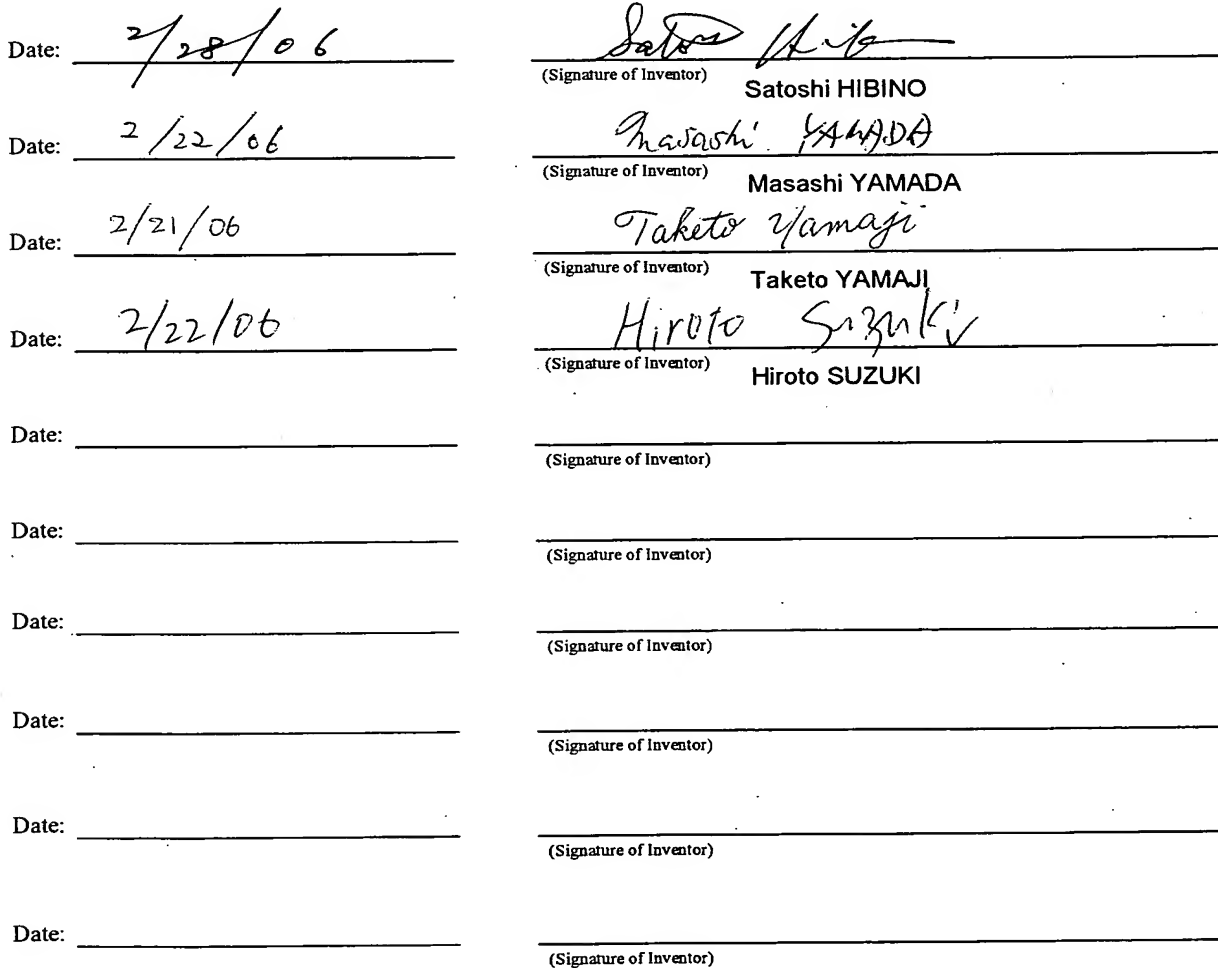 Date: 2/28/06 Satoshi Hib
(Signature of Inventor)
Satoshi HIBINO
Date: 2/22/06 Masashi YAMADA
(Signature of Inventor)
Masashi YAMADA
Date: 2/21/06 Taketo Yamaji
(Signature of Inventor)
Taketo YAMAJI
Date: 2/22/06 Hiroto Suzuki
(Signature of Inventor)
Hiroto SUZUKI
Date:
(Signature of Inventor)
Date:
(Signature of Inventor)
Date:
(Signature of Inventor)
Date:
(Signature of Inventor)
Date:
(Signature of Inventor)
Date:
(Signature of Inventor)